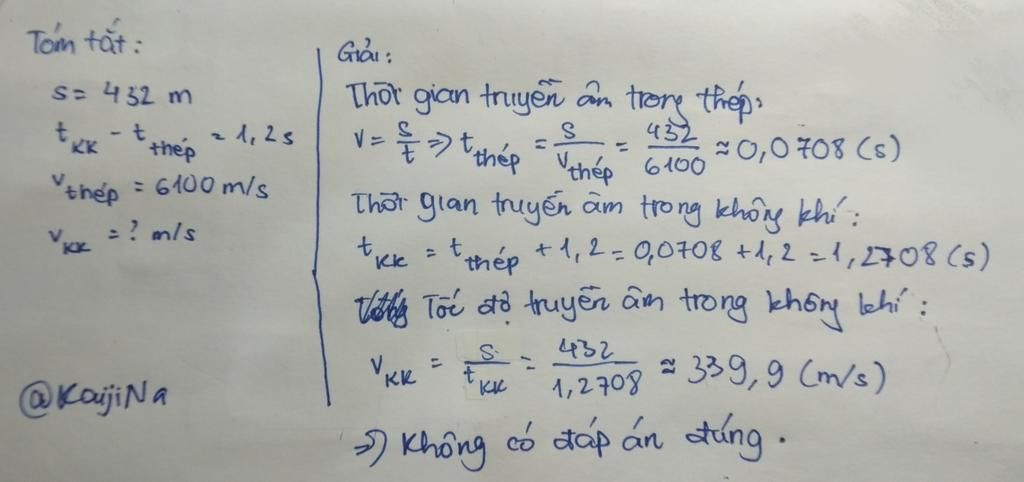 Tóm tắt:
s = 432 m
t_KK - t_thép = 1,2s
v_thép = 6100 m/s
v_KK = ? m/s
@KaijiNa
Giải:
Thời gian truyền âm trong thép:
v = s/t => t_thép = s/v_thép = 432/6100 ≈ 0,0708 (s)
Thời gian truyền âm trong không khí:
t_KK = t_thép + 1,2 = 0,0708 + 1,2 = 1,2708 (s)
Tốc độ truyền âm trong không khí:
v_KK = s/t_KK = 432/1,2708 ≈ 339,9 (m/s)
=> Không có đáp án đúng.